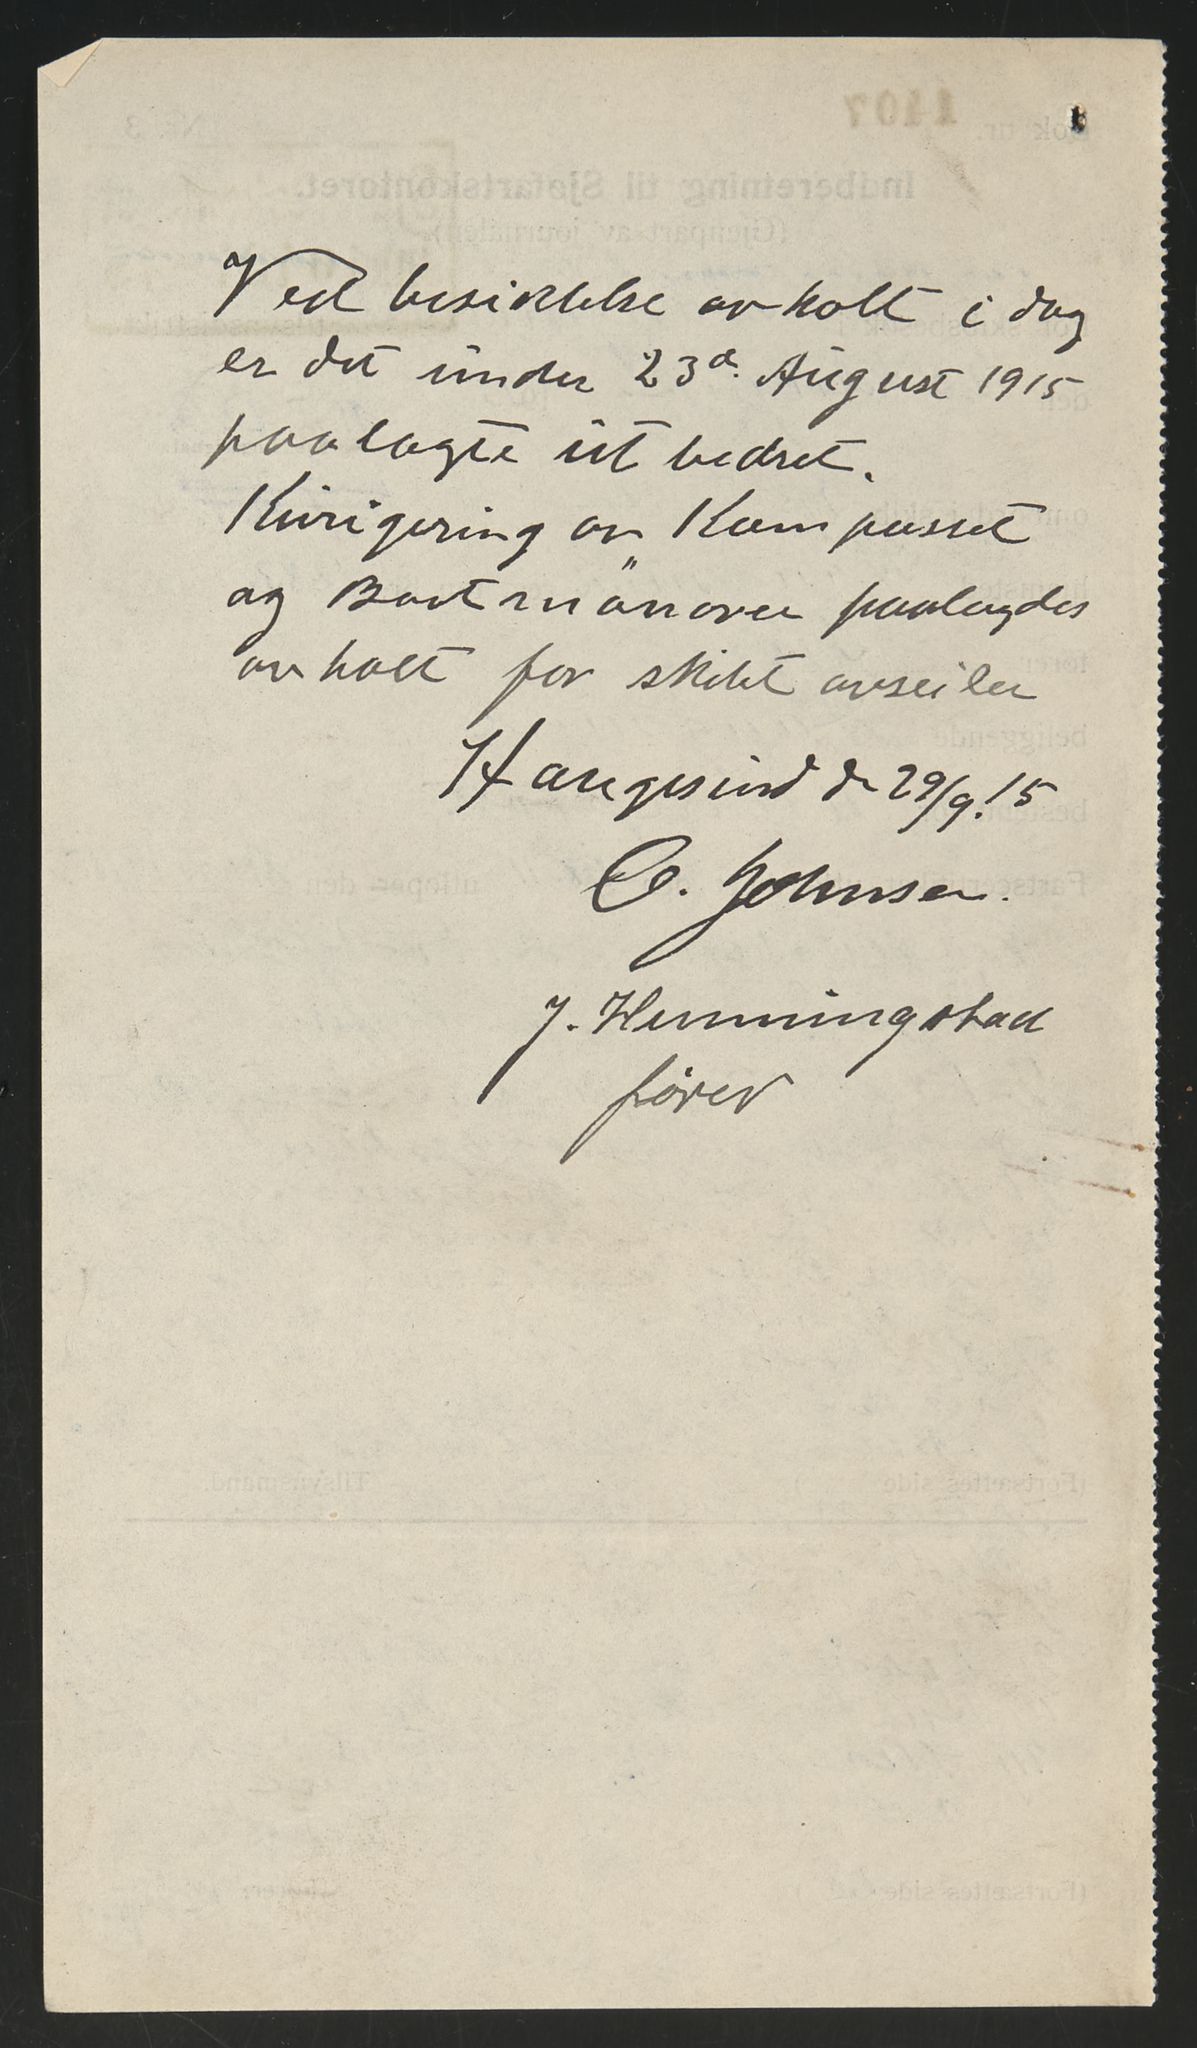 Ved besiktelse avholt i dag
er det under 23d. August 1915
paalagte utbedret.
Kurigering av Kompasset
og Baatmanøver paalagdes
avholt før skibet avseiler
Haugesund d 29/9. 15
O. Johnsen.
J. Henningstad
fører